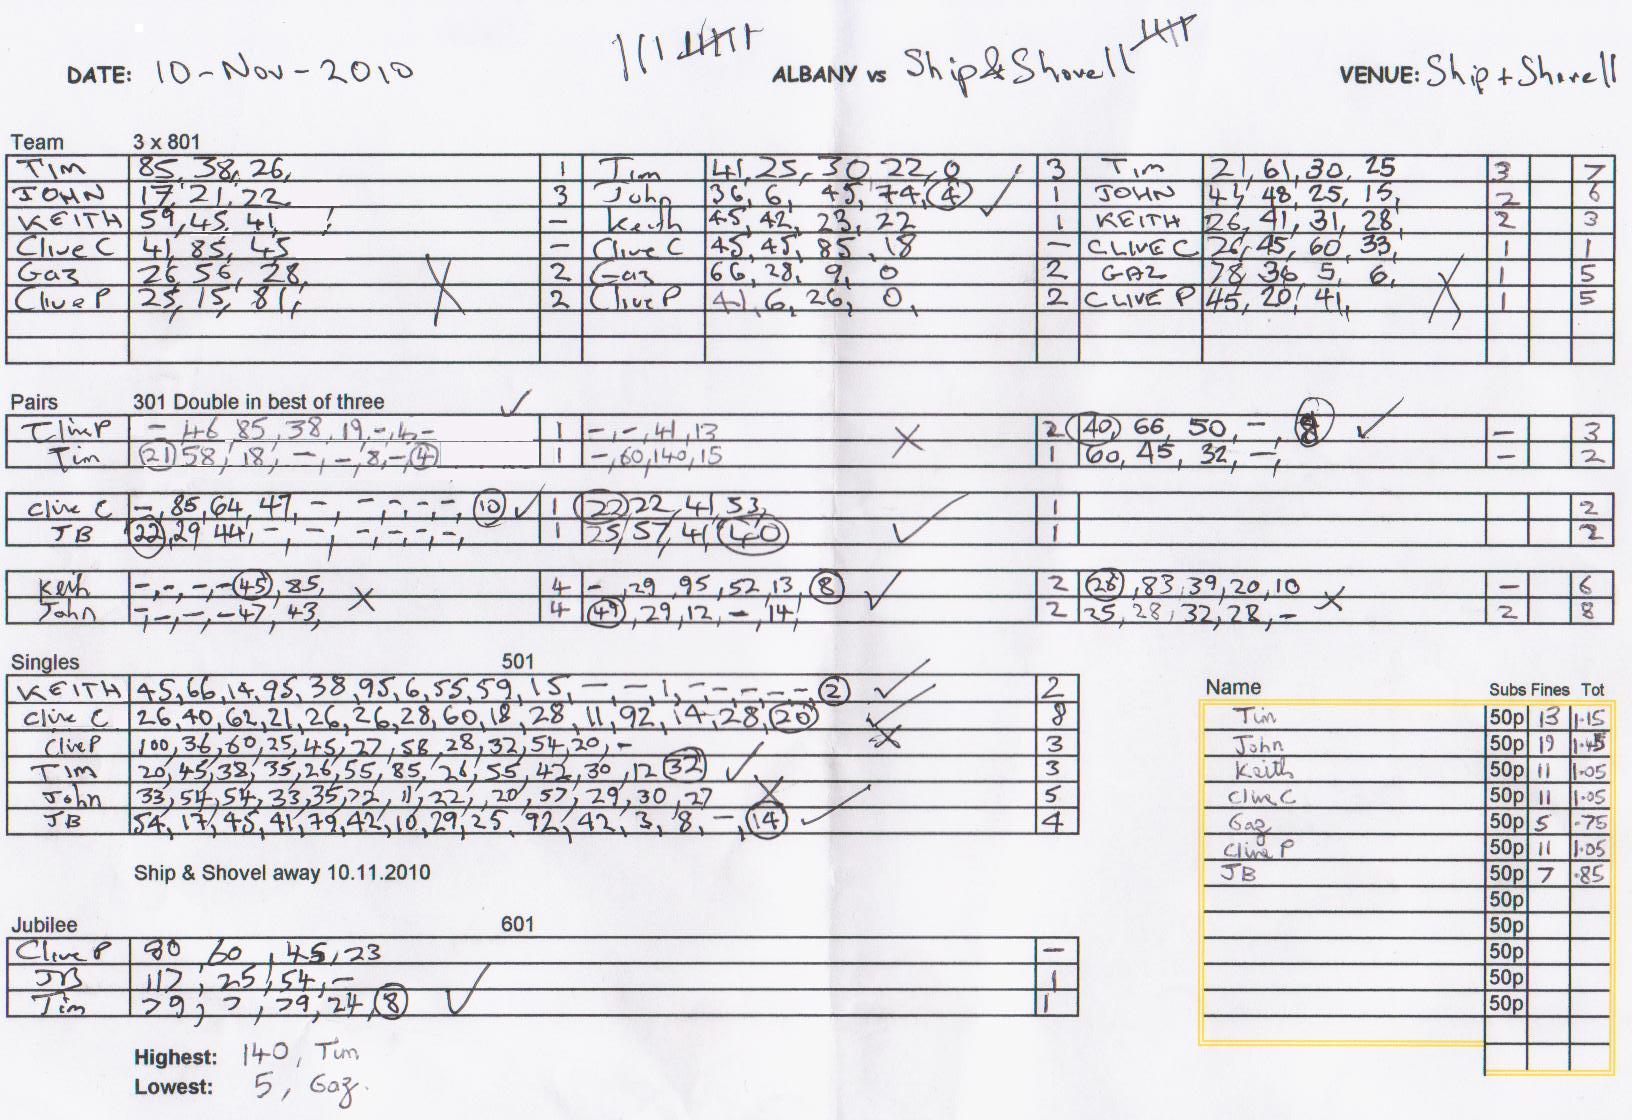 DATE: 10-Nov-2010 ALBANY vs Ship & Shovell VENUE: Ship + Shovell
Team 3 x 801
Tim 85, 38, 26, 1 Tim 41, 25, 30 22, 0 3 Tim 21, 61, 30, 25 3 7
JOHN 17, 21, 22 3 John 36, 6, 45, 74, 4 1 JOHN 41, 48, 25, 15, 2 6
KEITH 59, 45, 41, ! - Keith 45, 42, 23, 22 1 KEITH 26, 41, 31, 28, 2 3
Clive C 41, 85, 45 - Clive C 45, 45, 85, 18 - CLIVE C 26, 45, 60, 33, 1 1
Gaz 26, 56, 28, 2 Gaz 66, 28, 9, 0 2 GAZ 78, 36, 5, 6, 1 5
Clive P 25, 15, 81, 2 Clive P 41, 6, 26, 0, 2 CLIVE P 45, 20, 41, 1 5
Pairs 301 Double in best of three
Clive P -, 46, 85, 38, 19, -, 4, - 1 -, -, 41, 13 2 40, 66, 50, -, 8 - 3
Tim 21, 58, 18, -, -, 8, -, 4 1 -, 60, 140, 15 1 60, 45, 32, -, - 2
Clive C -, 85, 64, 47, -, -, -, -, -, 10 1 22, 22, 41, 53, 1 2
JB 22, 29, 44, -, -, -, -, -, -, 1 25, 57, 41, 40 1 2
Keith -, -, -, -, 45, 85, 4 -, 29, 95, 52, 13, 8 2 26, 83, 39, 20, 10 - 6
John -, -, -, -47, 43, 4 49, 29, 12, -, 14, 2 25, 28, 32, 28, - 2 8
Singles 501
KEITH 45, 66, 14, 95, 38, 95, 6, 55, 59, 15, -, -, 1, -, -, -, -, -, 2 2
Clive C 26, 40, 62, 21, 26, 26, 28, 60, 18, 28, 11, 92, 14, 28, 20 8
Clive P 100, 36, 60, 25, 45, 27, 58, 28, 32, 54, 20, - 3
TIM 20, 45, 38, 35, 26, 55, 85, 26, 55, 42, 30, 12 32 3
John 33, 54, 54, 33, 35, 72, 11, 22, 20, 57, 29, 30, 27 5
JB 54, 17, 45, 41, 79, 42, 10, 29, 25, 92, 42, 3, 8, -, 14 4
Name Subs Fines Tot
Tim 50p 13 1.15
John 50p 19 1.45
Keith 50p 11 1.05
Clive C 50p 11 1.05
Gaz 50p 5 .75
Clive P 50p 11 1.05
JB 50p 7 .85
50p
50p
50p
50p
50p
Ship & Shovel away 10.11.2010
Jubilee 601
Clive P 80, 60, 45, 23 -
JB 117, 25, 54, - 1
Tim 79, 7, 79, 24, 8 1
Highest: 140, Tim
Lowest: 5, Gaz.